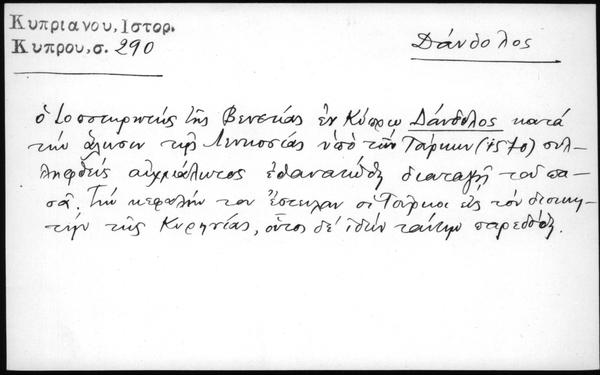 Κυπριανου, Ιστορ.
Κυπρου, σ. 290
Δάνδολος
ὁ τοποτηρητής τῆς Βενετίας ἐν Κύπρῳ Δάνδολος κατά
τήν ἅλωσιν τῆς Λευκωσίας ὑπό τῶν Τούρκων (1570) συλ-
ληφθείς αἰχμάλωτος ἐθανατώθη διαταγῇ τοῦ πα-
σᾶ. Τήν κεφαλήν του ἔστειλαν οἱ Τοῦρκοι εἰς τόν διοικη-
τήν τῆς Κυρηνίας, οὗτος δέ ἰδών ταύτην παρεδόθη.